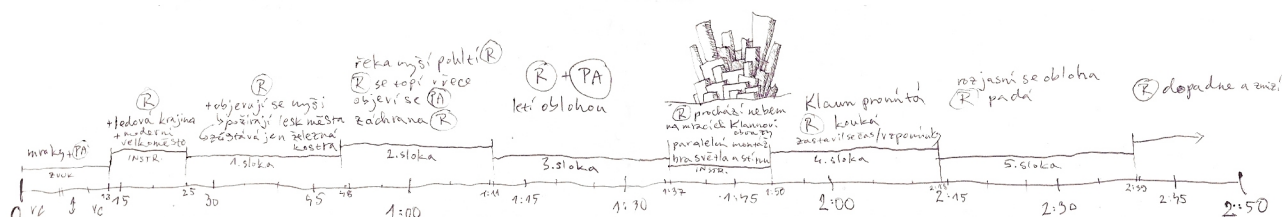 mraky + PA
ZVUK
R
+ ledová krajina
+ moderní
velkoměsto
INSTR.
R
+ objevují se myši
požírají lesk města
zůstává jen železná
kostra
1. sloka
řeka myší pohltí R
R se topí v řece
objeví se PA
záchrana R
2. sloka
R + PA
letí oblohou
3. sloka
R prochází nebem
na mracích Klaunovi
obrazy
paralelní montáž
hra světla a stínu
INSTR.
Klaun promítá
R kouká
zastaví se čas/vzpomínky
4. sloka
rozjasní se obloha
R padá
5. sloka
R dopadne a zmizí
0
VC
VC
13
15
25
30
45
48
1:00
1:11
1:15
1:30
1:37
1:50
2:00
2:15
2:30
2:45
2:50